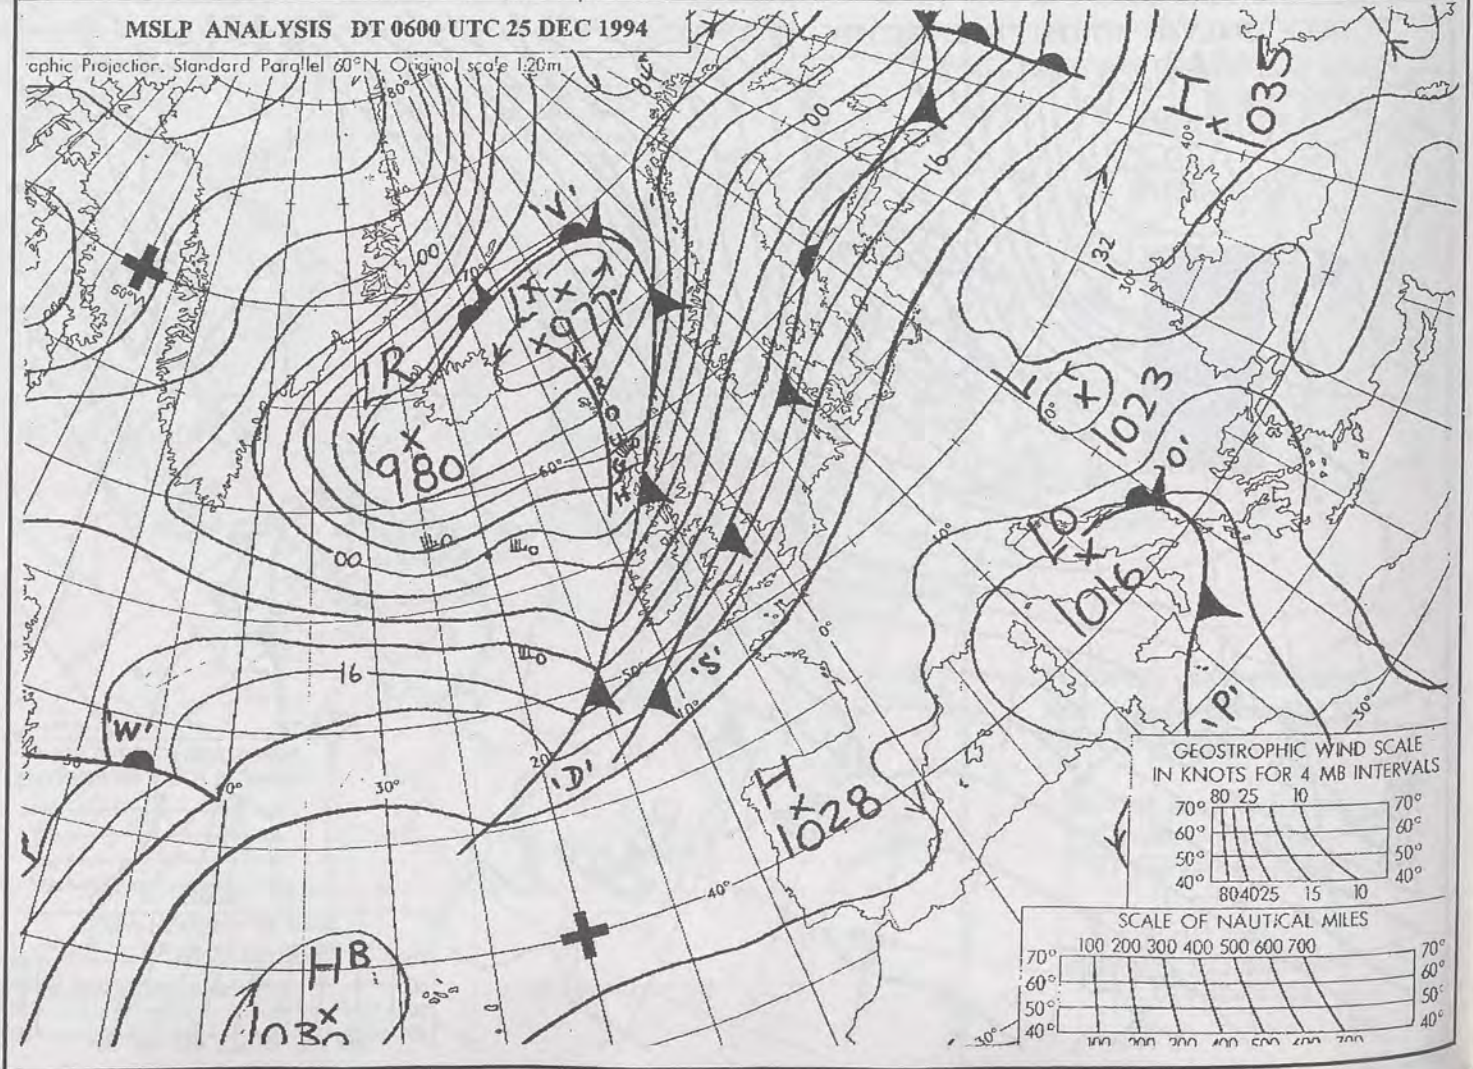 MSLP ANALYSIS DT 0600 UTC 25 DEC 1994
aphic Projection. Standard Parallel 60°N. Original scale 1:20m
80°
00
H
1035
40°
16
'V'
00
70°
LX
977
32
30°
60°W
LR
980
L
1023
0°
TROUGH
60°
'O'
10°
LO
1016
00
0°
'S'
50°
10°
16
'W'
50
30°
20°
'D'
'P'
30°
H
1028
40°
HB
1030
30°
GEOSTROPHIC WIND SCALE
IN KNOTS FOR 4 MB INTERVALS
80 25 10
70° 70°
60° 60°
50° 50°
40° 40°
80 40 25 15 10
SCALE OF NAUTICAL MILES
100 200 300 400 500 600 700
70° 70°
60° 60°
50° 50°
40° 40°
100 200 300 400 500 600 700